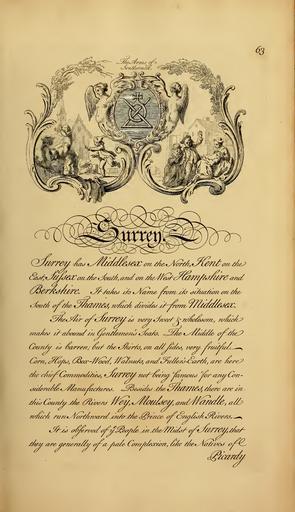 63
The Arms of
Southwark.
Surrey.
Surrey has Middlesex on the North, Kent on the
East, Sussex on the South, and on the West Hampshire and
Berkshire. It takes its Name from its situation on the
South of the Thames, which divides it from Middlesex.
The Air of Surrey is very Sweet & wholsom, which
makes it abound in Gentlemen's Seats. The Middle of the
County is barren, but the Skirts, on all sides, very fruitful.
Corn, Hops, Box-Wood, Walnuts, and Fuller's Earth, are here
the chief Commodities, Surrey not being famous for any Con-
siderable Manufactures. Besides the Thames, there are in
this County the Rivers Wey, Moulsey, and Wandle, all
which run Northward into the Prince of English Rivers.
It is observed of ye People in the Midst of Surrey, that
they are generally of a pale Complexion, like the Natives of
Picardy